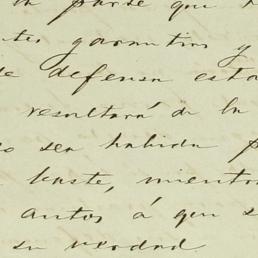 la parte que
garantías y
de defensa esta
resultará de la
sea habida
baste, mientras
autos á que s
su verdad